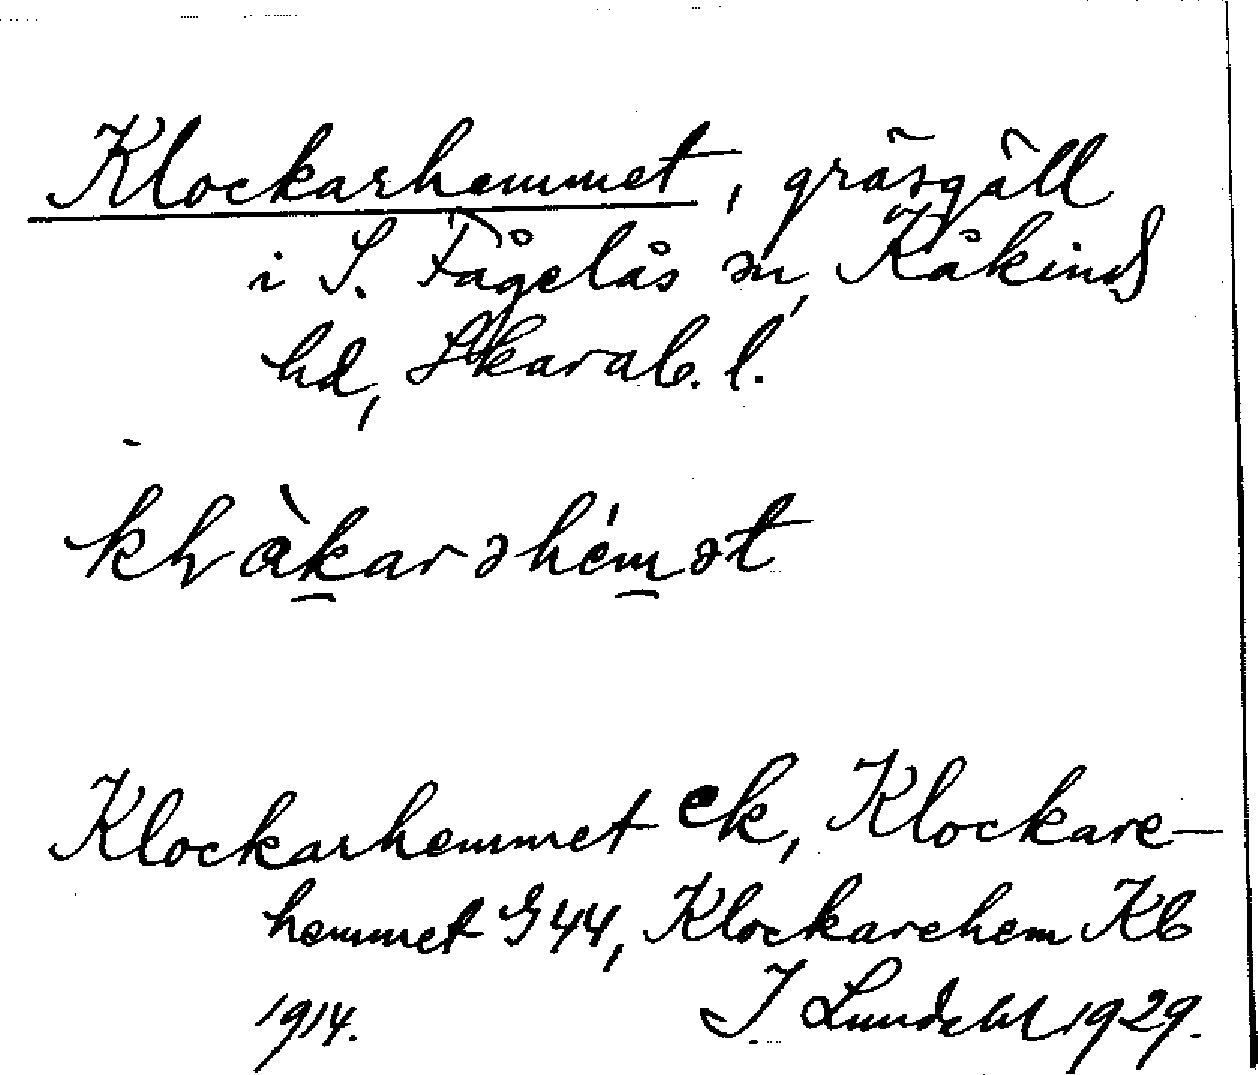 Klockarhemmet, gräsgäll
i S. Fågelås sn, Kåkinds
hd, Skarab. l.
klàkarəhémət
Klockarhemmet ek, Klockare-
hemmet G44, Klockarehem Kb
1914. I Lundahl 1929.